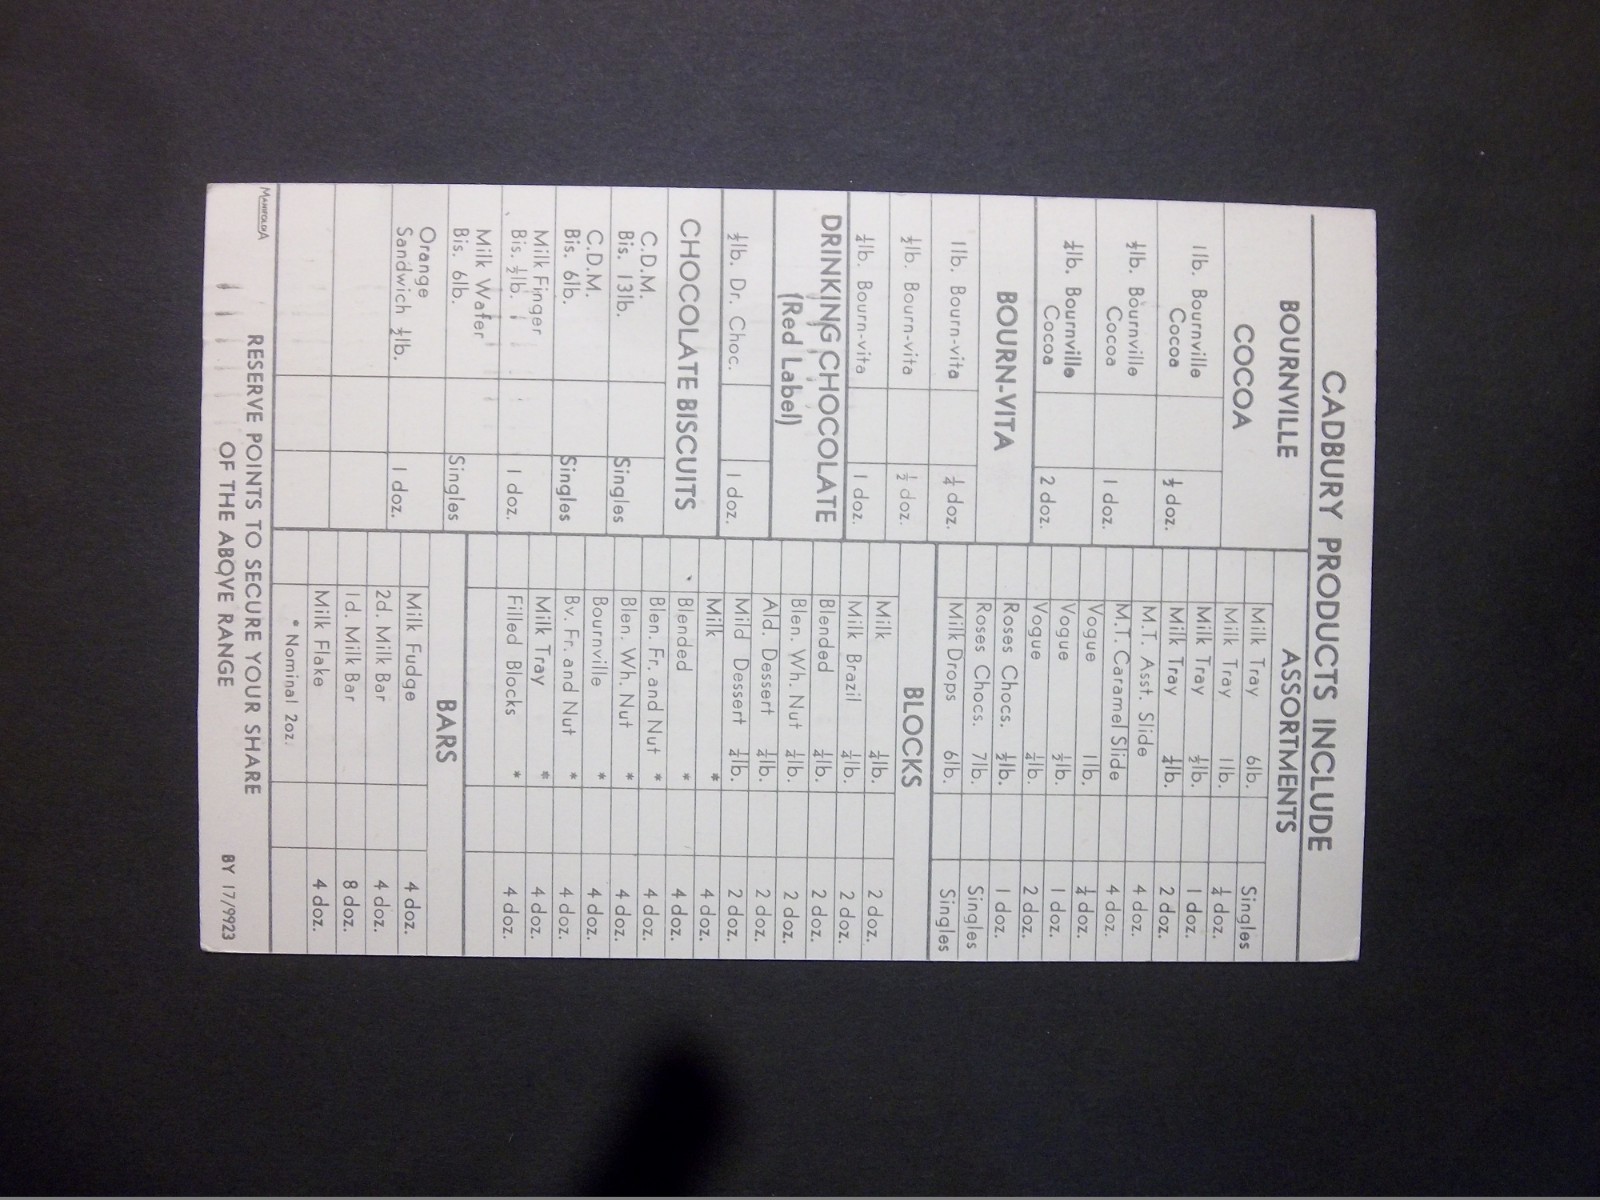 CADBURY PRODUCTS INCLUDE
BOURNVILLE
COCOA
1 lb. Bournville
Cocoa ½ doz.
½ lb. Bournville
Cocoa 1 doz.
¼ lb. Bournville
Cocoa 2 doz.
BOURN-VITA
1 lb. Bourn-vita ¼ doz.
½ lb. Bourn-vita ½ doz.
¼ lb. Bourn-vita 1 doz.
DRINKING CHOCOLATE
(Red Label)
½ lb. Dr. Choc. 1 doz.
CHOCOLATE BISCUITS
C.D.M.
Bis. 13 lb. Singles
C.D.M.
Bis. 6 lb. Singles
Milk Finger
Bis. ½ lb. 1 doz.
Milk Wafer
Bis. 6 lb. Singles
Orange
Sandwich ½ lb. 1 doz.
ASSORTMENTS
Milk Tray 6 lb. Singles
Milk Tray 1 lb. ¼ doz.
Milk Tray ½ lb. 1 doz.
Milk Tray ¼ lb. 2 doz.
M.T. Asst. Slide 4 doz.
M.T. Caramel Slide 4 doz.
Vogue 1 lb. ¼ doz.
Vogue ½ lb. 1 doz.
Vogue ¼ lb. 2 doz.
Roses Chocs. ½ lb. 1 doz.
Roses Chocs. 7 lb. Singles
Milk Drops 6 lb. Singles
BLOCKS
Milk ¼ lb. 2 doz.
Milk Brazil ¼ lb. 2 doz.
Blended ¼ lb. 2 doz.
Blen. Wh. Nut ¼ lb. 2 doz.
Ad. Dessert ¼ lb. 2 doz.
Mild Dessert ¼ lb. 2 doz.
Milk * 4 doz.
Blended * 4 doz.
Blen. Fr. and Nut * 4 doz.
Blen. Wh. Nut * 4 doz.
Bournville * 4 doz.
Bv. Fr. and Nut * 4 doz.
Milk Tray * 4 doz.
Filled Blocks * 4 doz.
BARS
Milk Fudge 4 doz.
2d. Milk Bar 4 doz.
1d. Milk Bar 8 doz.
Milk Flake 4 doz.
* Nominal 2 oz.
RESERVE POINTS TO SECURE YOUR SHARE
OF THE ABOVE RANGE
BY 17/9923